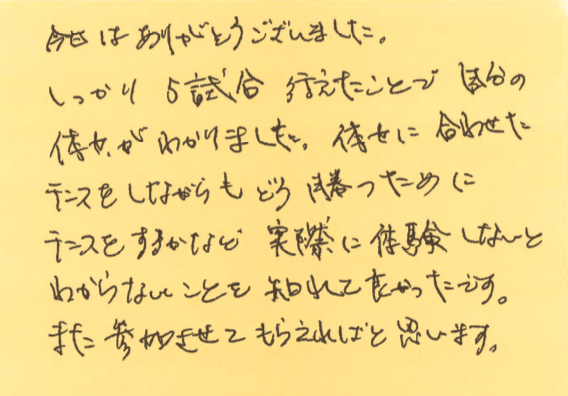 今日はありがとうございました。
しっかり5試合行えたことで自分の
体力がわかりました。体力に合わせた
テニスをしながらもどう勝つために
テニスをするかなど実際に体験しないと
わからないことを知れて良かったです。
また参加させてもらえればと思います。